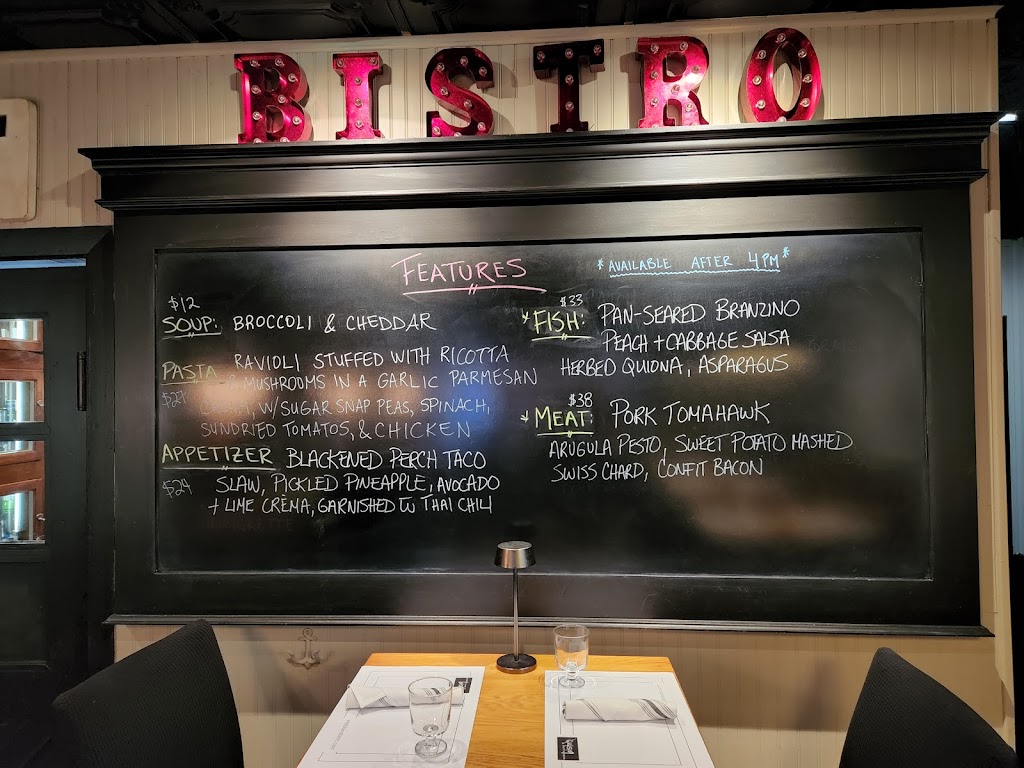 BISTRO
FEATURES
*AVAILABLE AFTER 4PM*
$12
SOUP: BROCCOLI & CHEDDAR
PASTA RAVIOLI STUFFED WITH RICOTTA
MUSHROOMS IN A GARLIC PARMESAN
W/SUGAR SNAP PEAS, SPINACH,
SUNDRIED TOMATOS, & CHICKEN
APPETIZER BLACKENED PERCH TACO
$24 SLAW, PICKLED PINEAPPLE, AVOCADO
+ LIME CRĒMA, GARNISHED W THAI CHILI
$33
FISH: PAN-SEARED BRANZINO
PEACH + CABBAGE SALSA
HERBED QUIONA, ASPARAGUS
$38
MEAT: PORK TOMAHAWK
ARUGULA PESTO, SWEET POTATO MASHED
SWISS CHARD, CONFIT BACON